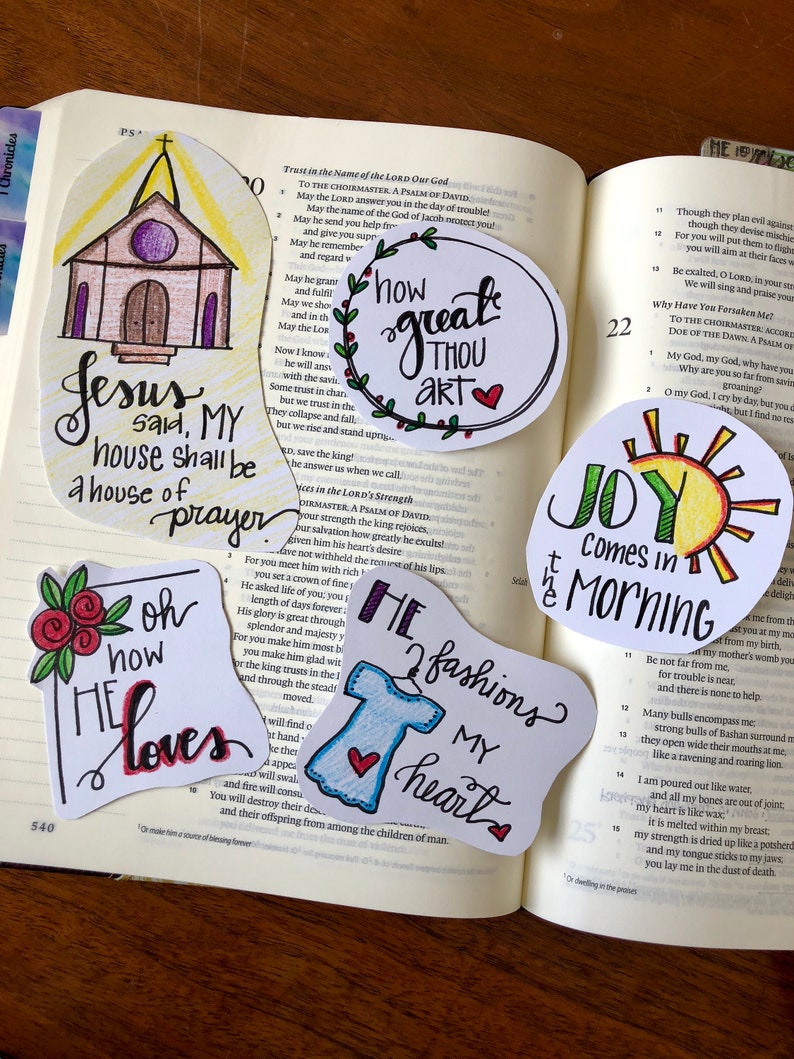 1 Chronicles
PSA
HE is risen
20
Trust in the Name of the LORD Our God
TO THE CHOIRMASTER. A PSALM OF DAVID.
1 May the LORD answer you in the day of trouble!
May the name of the God of Jacob protect you!
2 May he send you help from
and give you support
3 May he remember
and regard w
May he grant
and fulfil
May we sho
and in th
May the LORD
Now I know
he will answ
with the savi
Some trust in chari
but we trust in the
They collapse and fall,
but we rise and stand upright
LORD, save the king!
he answer us when we call.
oices in the LORD'S Strength
CHOIRMASTER. A PSALM OF DAVID.
your strength the king rejoices,
our salvation how greatly he exults!
given him his heart's desire
have not withheld the request of his lips.
3 For you meet him with rich
you set a crown of fine
He asked life of you; you
length of days forever a
His glory is great through
splendor and majesty y
For you make him most bl
you make him glad with
For the king trusts in the
and through the steadfa
moved.
will find o
right hand
ke them
LORD will swall
and fire will consu
10 You will destroy their desc
and their offspring from among the children of man.
540
1 Or make him a source of blessing forever
Jesus
said, MY
house shall be
a house of
prayer.
how
great
THOU
ART
JOY
comes in
the MORNING
oh
how
HE
loves
HE
fashions
MY
heart
11 Though they plan evil against
though they devise mischie
12 For you will put them to flight
you will aim at their faces w
13 Be exalted, O LORD, in your stre
We will sing and praise your
Why Have You Forsaken Me?
22
TO THE CHOIRMASTER: ACCORD
DOE OF THE DAWN. A PSALM O
1 My God, my God, why have you
Why are you so far from savin
groaning?
2 O my God, I cry by day, but you d
night, but I find no rest
Selah
me from
you at my mot
from my birth,
my mother's womb you
11 Be not far from me,
for trouble is near,
and there is none to help.
12 Many bulls encompass me;
strong bulls of Bashan surround m
13 they open wide their mouths at me,
like a ravening and roaring lion.
14 I am poured out like water,
and all my bones are out of joint;
my heart is like wax;
it is melted within my breast;
15 my strength is dried up like a potsherd
and my tongue sticks to my jaws;
you lay me in the dust of death.
1 Or dwelling in the praises